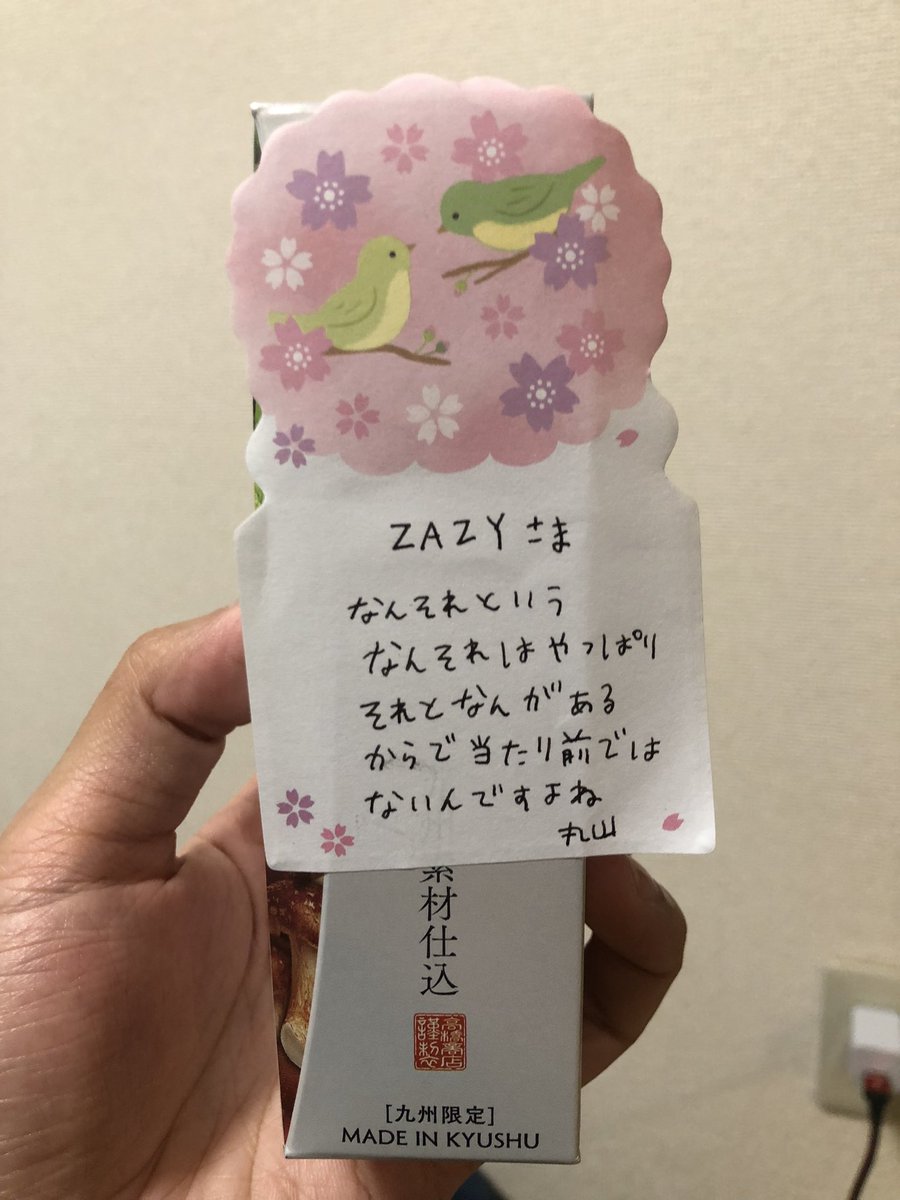 ZAZYさま
なんそれという
なんそれはやっぱり
それとなんがある
からで当たり前では
ないんですよね
丸山
素材仕込
高橋商店
謹製
[九州限定]
MADE IN KYUSHU